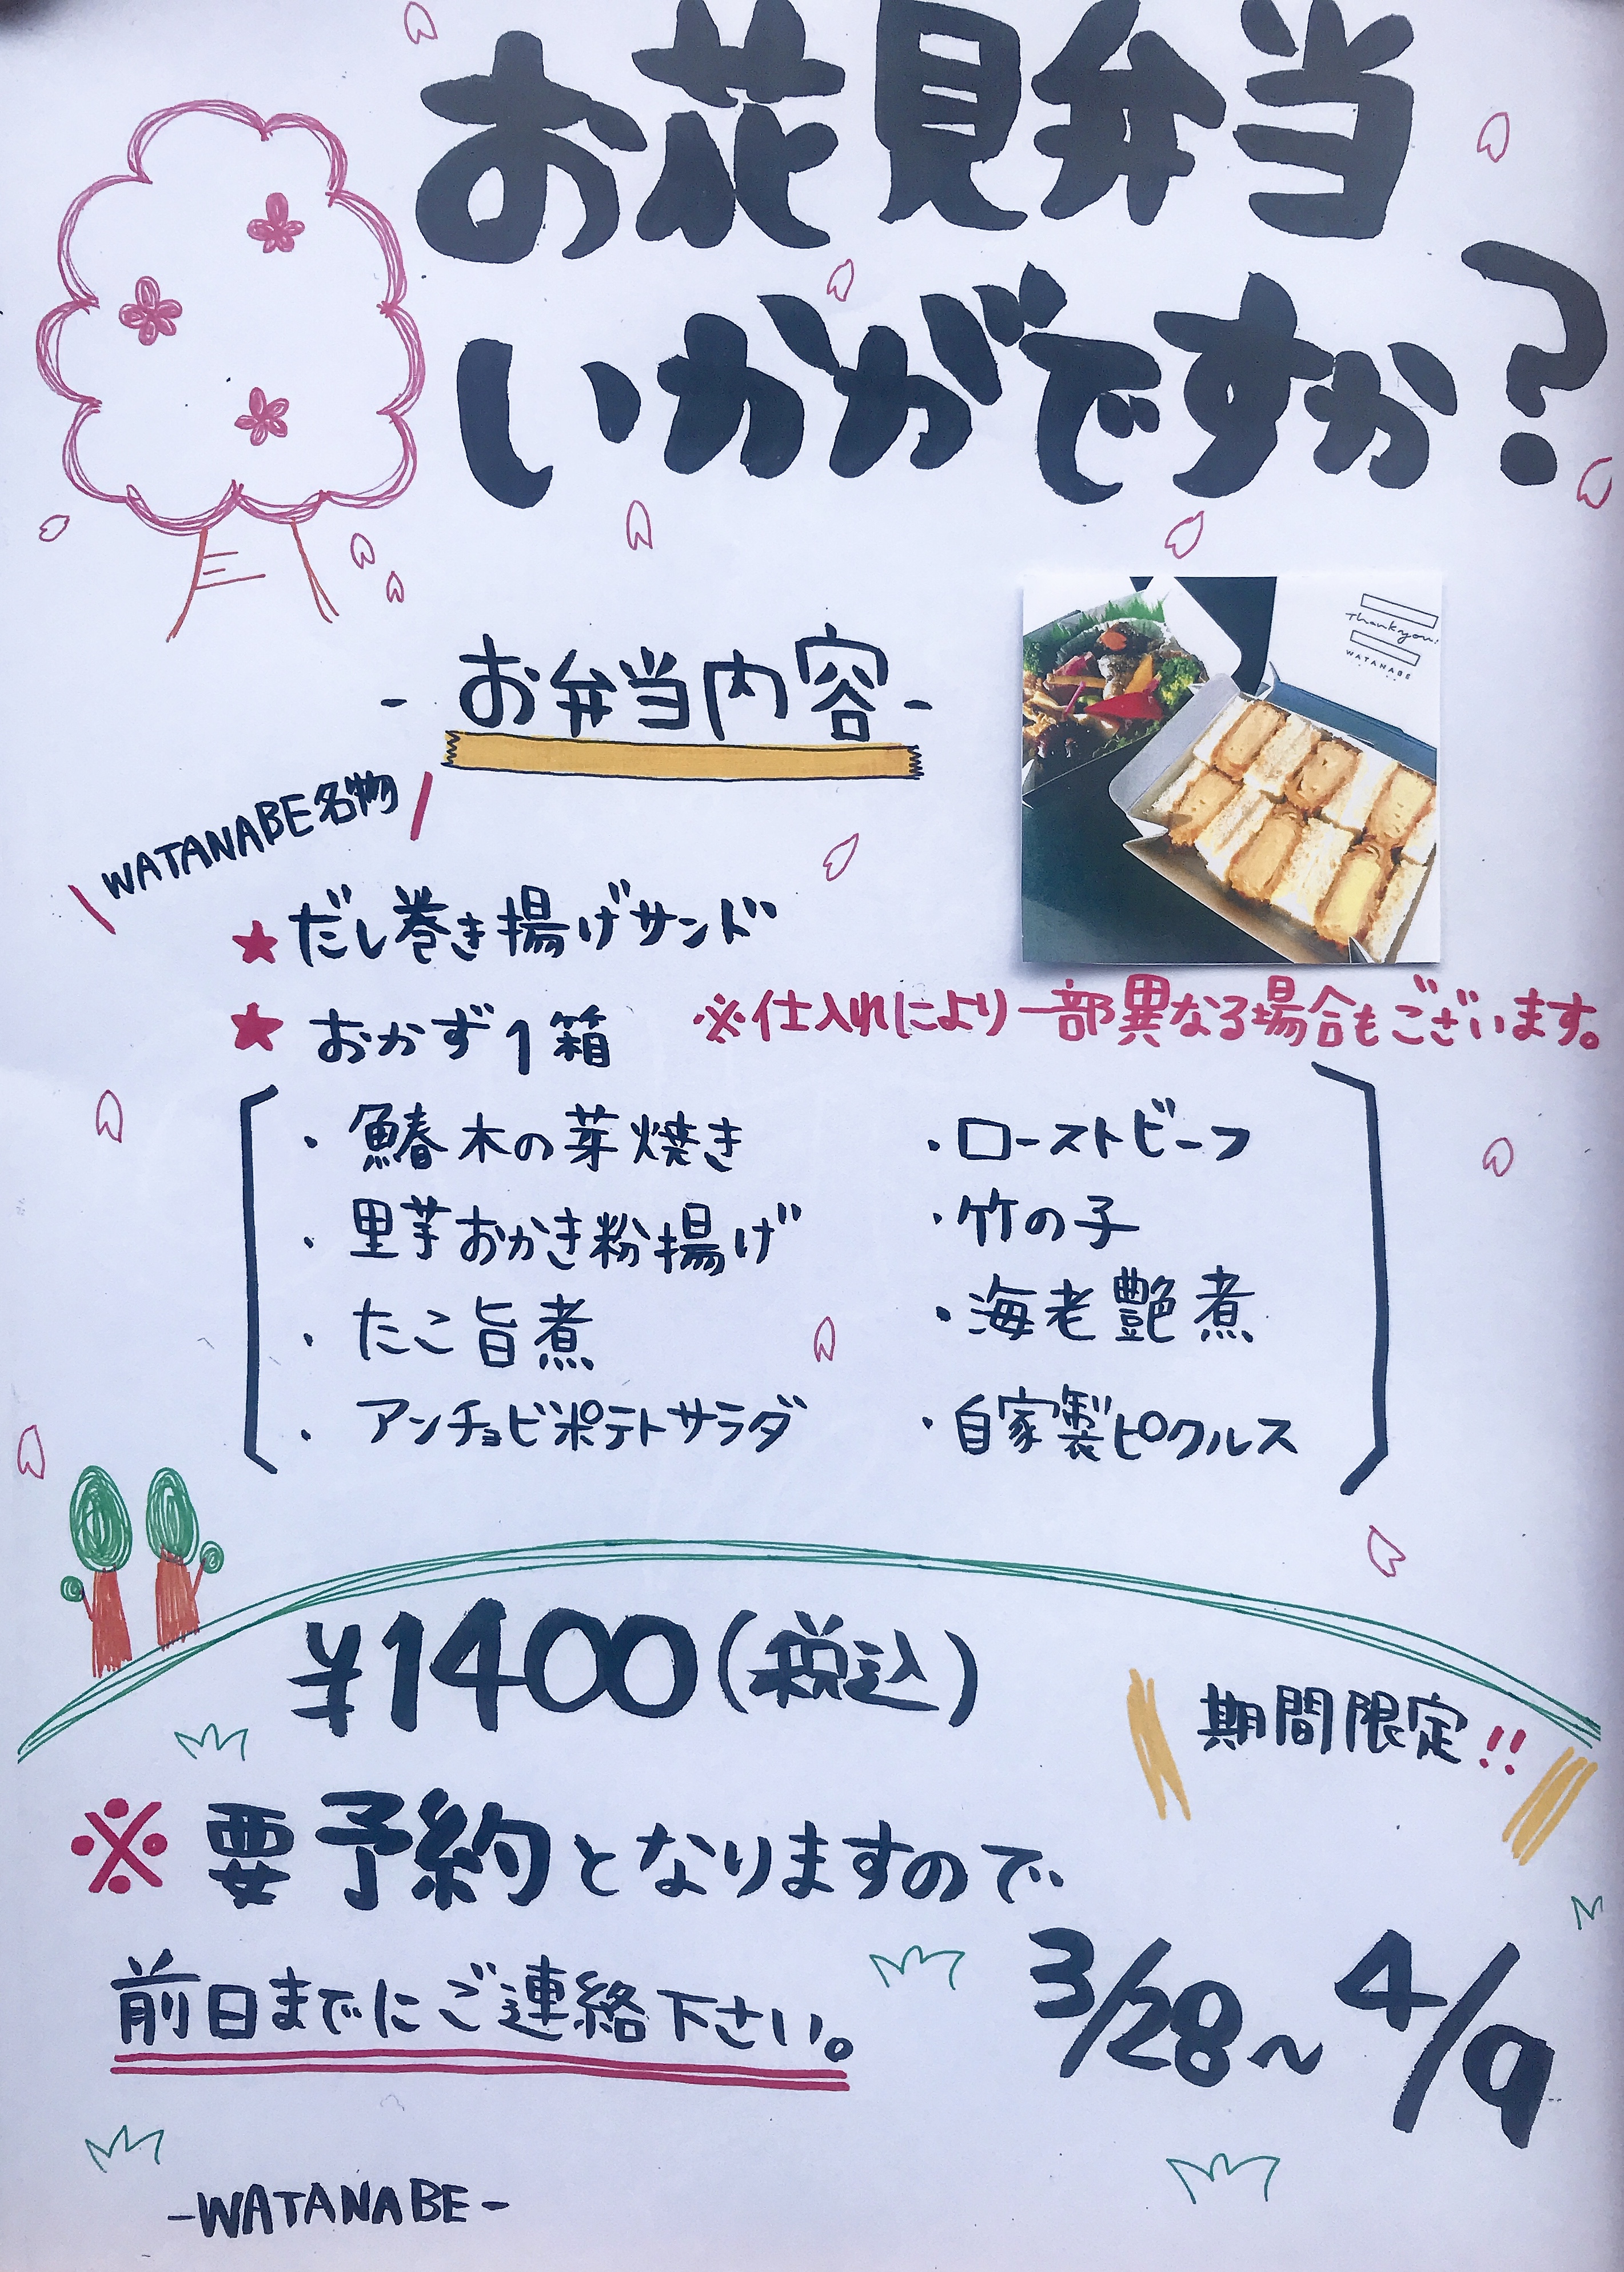 お花見弁当
いかがですか?
Thank you!
WATANABE
- お弁当内容 -
WATANABE名物
★ だし巻き揚げサンド
★ おかず1箱
※仕入れにより一部異なる場合もございます。
・鰆木の芽焼き
・里芋おかき粉揚げ
・たこ旨煮
・アンチョビポテトサラダ
・ローストビーフ
・竹の子
・海老艶煮
・自家製ピクルス
¥1400(税込)
期間限定!!
※要予約となりますので
前日までにご連絡下さい。
3/28~4/9
-WATANABE-